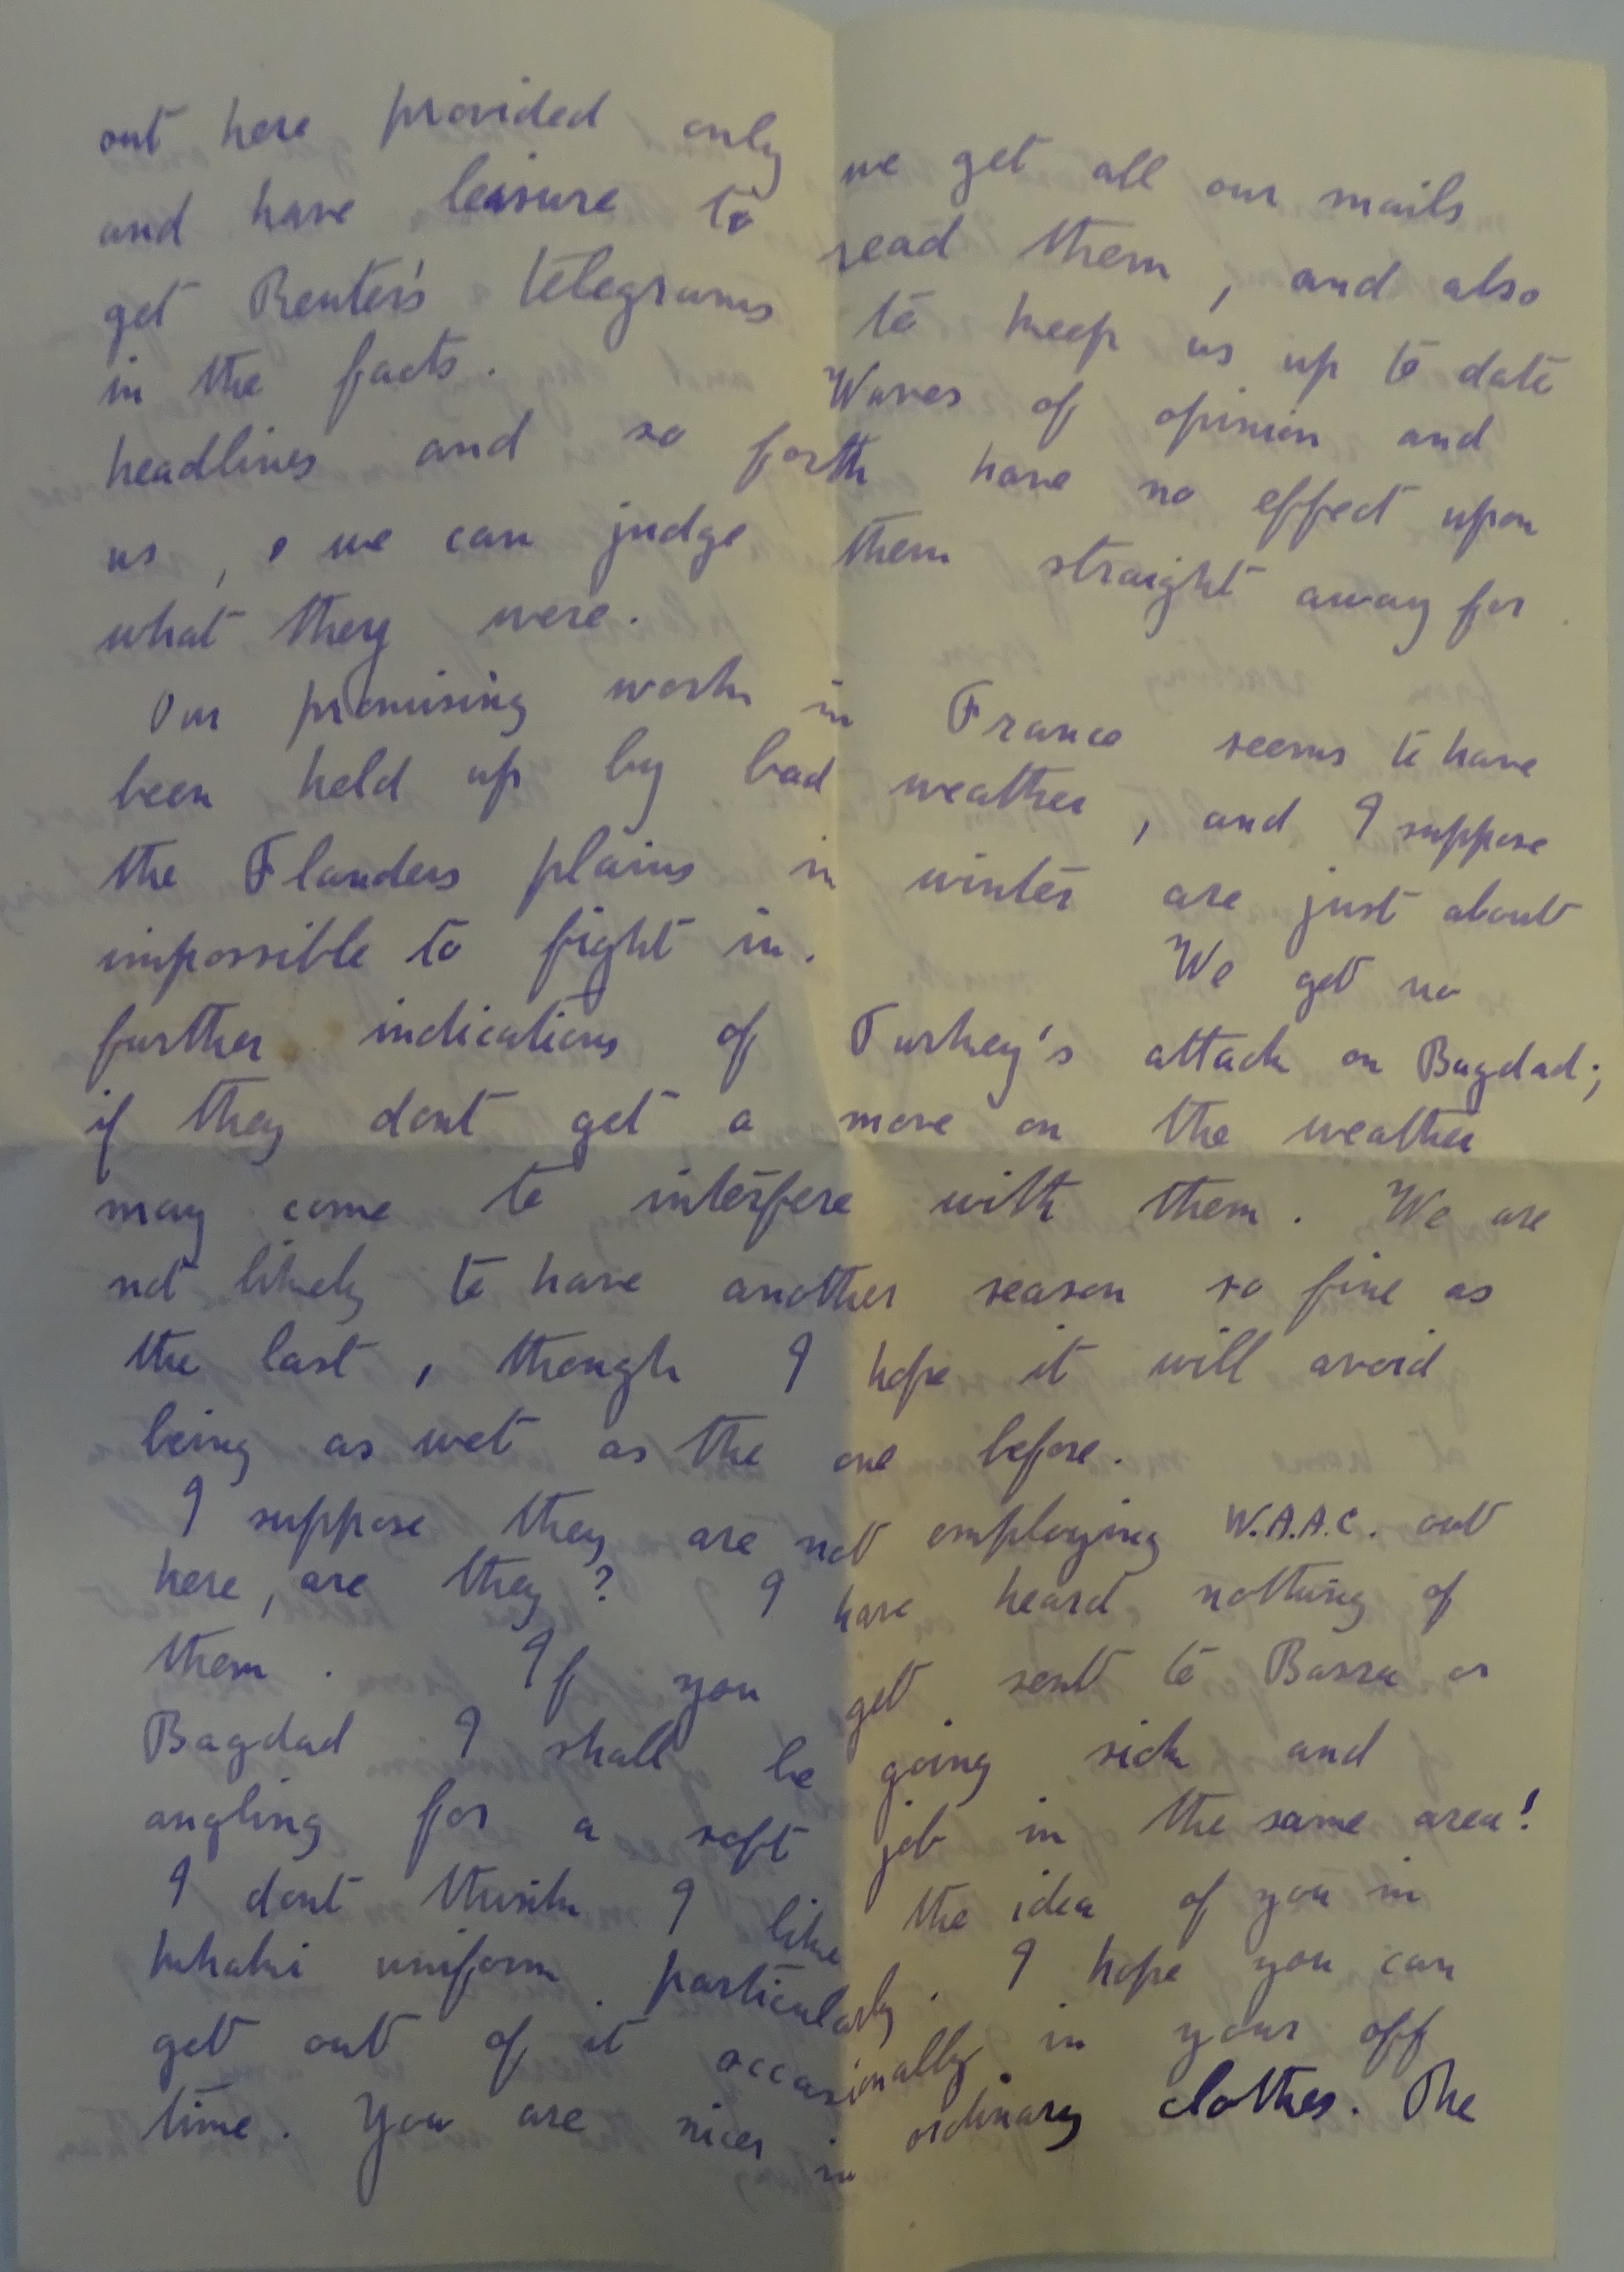 out here provided only we get all our mails
and have leisure to read them, and also
get Reuter's telegrams to keep us up to date
in the facts. Waves of opinion and
headlines and so forth have no effect upon
us, we can judge them straight away for
what they were.
Our promising work in France seems to have
been held up by bad weather, and I suppose
the Flanders plains in winter are just about
impossible to fight in. We get no
further indications of Turkey's attack on Bagdad;
if they dont get a move on the weather
may come to interfere with them. We are
not likely to have another season so fine as
the last, though I hope it will avoid
being as wet as the one before.
I suppose they are not employing W.A.A.C. out
here, are they? I have heard nothing of
them. If you get sent to Basra or
Bagdad I shall be going sick and
angling for a soft job in the same area!
I dont think I like the idea of you in
khaki uniform particularly. I hope you can
get out of it occasionally in your off
time. You are nicer in ordinary clothes. The